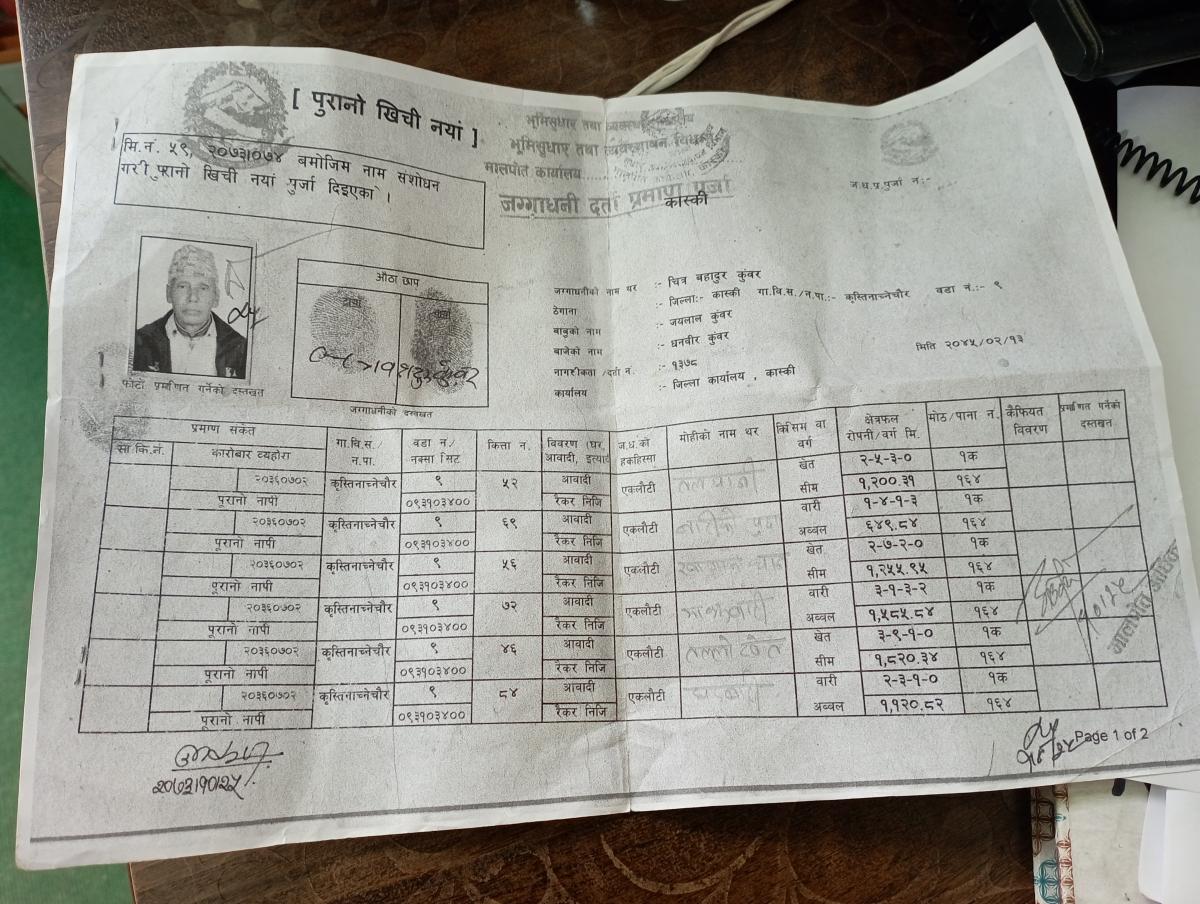 [ पुरानो खिची नयां ]
मि.नं. ५९, २०७३।०७४ बमोजिम नाम संशोधन
गरी पुरानो खिची नयां पुर्जा दिइएको ।
भूमिसुधार तथा
भूमिसुधार तथा
मालपोत कार्यालय
जग्गाधनी दर्ता प्रमाण पुर्जा
कास्की
ज.ध.प्र.पुर्जा नं:-
फोटो प्रमाणित गर्नेको दस्तखत
औठा छाप
जग्गाधनीको दस्तखत
जग्गाधनीको नाम थर :- चित्र बहादुर कुंवर
ठेगाना :- जिल्ला:- कास्की गा.वि.स./न.पा:- कृस्तिनाच्नेचौर वडा नं.:- ९
बाबुको नाम :- जयलाल कुंवर
बाजेको नाम :- धनवीर कुंवर
नागरीकता /दर्ता नं. :- १३७८ मिति २०४५/०२/१३
कार्यालय :- जिल्ला कार्यालय , कास्की
प्रमाण संकेत गा.वि.स./न.पा. वडा नं./नक्सा सिट कित्ता नं. विवरण (घर, आवादी, इत्यादि ज.ध.को हकहिस्सा मोहीको नाम थर किसिम वा वर्ग क्षेत्रफल रोपनी/वर्ग मि. मोठ/पाना नं. कैफियत विवरण प्रमाणित गर्नेको दस्तखत
सा.कि.नं. कारोबार व्यहोरा
२०३६०७०२ कृस्तिनाच्नेचौर ९ ५२ आवादी एकलौटी खेत २-५-३-० १क
पूरानो नापी ०९३१०३४०० रैकर निजि सीम १,२००.३१ १६४
२०३६०७०२ कृस्तिनाच्नेचौर ९ ६९ आवादी एकलौटी वारी १-४-१-३ १क
पूरानो नापी ०९३१०३४०० रैकर निजि अब्बल ६४९.८४ १६४
२०३६०७०२ कृस्तिनाच्नेचौर ९ ५६ आवादी एकलौटी खेत २-७-२-० १क
पूरानो नापी ०९३१०३४०० रैकर निजि सीम १,२५५.९५ १६४
२०३६०७०२ कृस्तिनाच्नेचौर ९ ७२ आवादी एकलौटी वारी ३-१-३-२ १क
पूरानो नापी ०९३१०३४०० रैकर निजि अब्बल १,५८५.८४ १६४
२०३६०७०२ कृस्तिनाच्नेचौर ९ ४६ आवादी एकलौटी खेत ३-९-१-० १क
पूरानो नापी ०९३१०३४०० रैकर निजि सीम १,८२०.३४ १६४
२०३६०७०२ कृस्तिनाच्नेचौर ९ ८४ आवादी एकलौटी वारी २-३-१-० १क
पूरानो नापी ०९३१०३४०० रैकर निजि अब्बल १,१२०.८२ १६४
Page 1 of 2